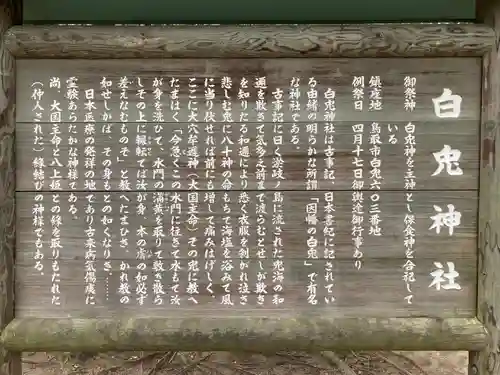 白兎神社
御祭神　白兎神を主神とし保食神を合祀して
いる
鎮座地　鳥取市白兎六〇三番地
例祭日　四月十七日御輿渡御行事あり
白兎神社は古事記、日本書紀に記されてい
る由緒の明らかな所謂「因幡の白兎」で有名
な神社である。
古事記に曰く淤岐ノ島に流された兎海の和
邇を敷きて気多之前まで渡らむとせしが欺き
を知りたる和邇により悉く衣服を剥がれ泣き
悲しむ兎に八十神の命もちて海塩を浴みて風
に当り伏せれば前にも増して痛みはげしく、
ここに大穴牟遅神（大国主命）その兎に教へ
たまはく「今急くこの水門に往きて水もて汝
が身を洗ひて、水門の蒲黄を取りて敷き散ら
しその上に輾転てば汝が身、本の膚のね必ず
差えなむものぞ」と教へたまひき　かれ教の
如せしかば　その身もとの如くなりき……
日本医療の発祥の地であり古来病気傷痍に
霊験あらたかな神様である。
尚、大国主命と八上姫との縁を取りもたれた
（仲人された）縁結びの神様でもある。